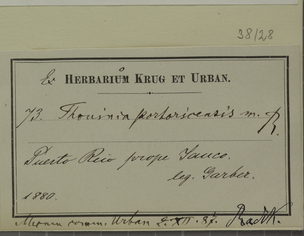 38/28
Ex HERBARIUM KRUG ET URBAN.
73. Thouinia portoricensis
Puerto Rico prope Yauco.
leg. Garber.
1880.
comm. Urban 2. XII. 37. Radlk.